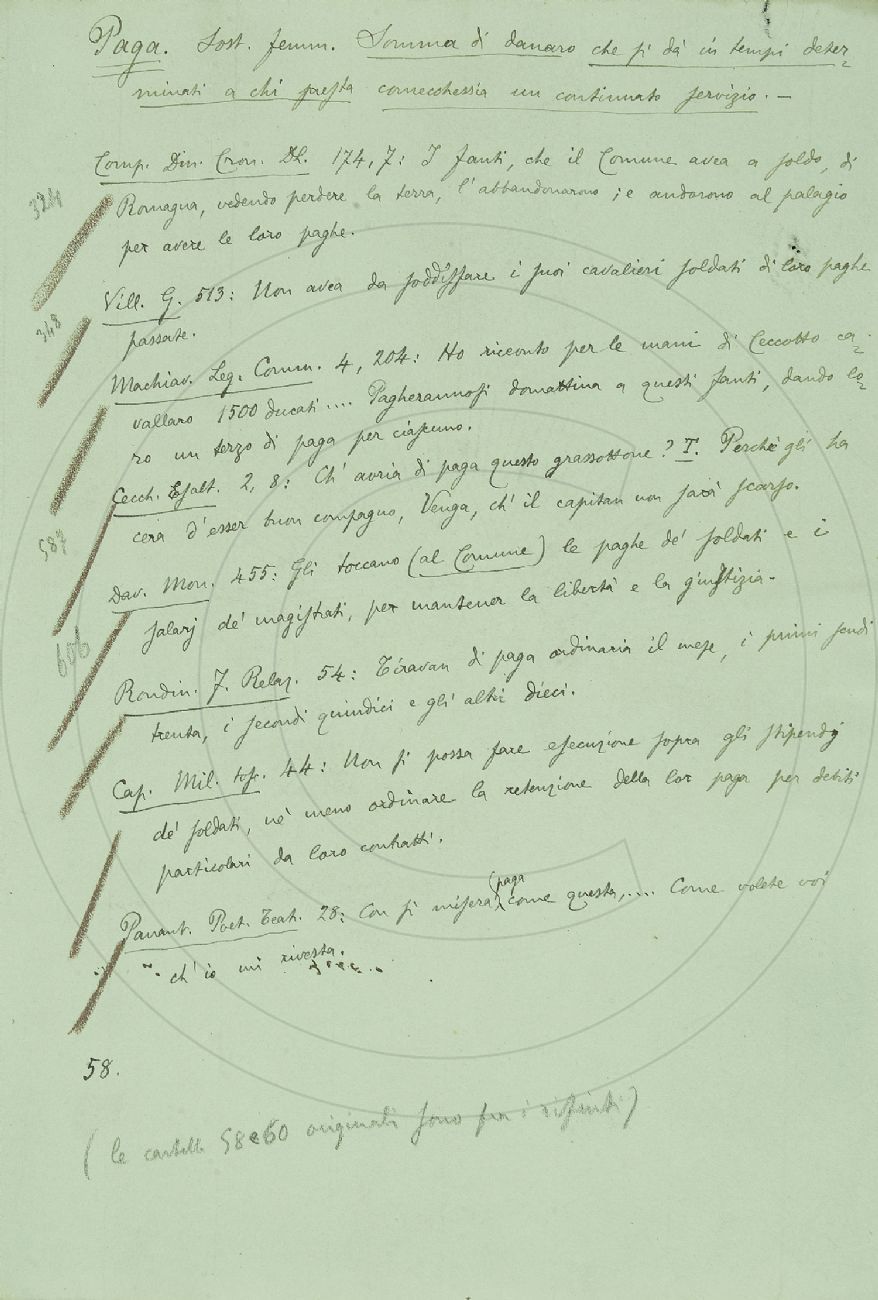 Paga. Sost. femm. Somma di danaro che si dà in tempi deter-
minati a chi presta comechessia un continuato servizio. —
Comp. Din. Cron. DL. 174, 7: I fanti, che il Comune avea a soldo, di
324
Romagna, vedendo perdere la terra, l'abbandonarono; e andorono al palagio
per avere le loro paghe.
Vill. G. 513: Non avea da soddisfare i suoi cavalieri soldati di loro paghe
348
passate.
Machiav. Leg. Comm. 4, 204: Ho ricevuto per le mani di Ceccotto ca-
vallaro 1500 ducati .... Pagherannosi domattina a questi fanti, dando lo-
ro un terzo di paga per ciascuno.
Cecch. Esalt. 2, 8: Ch' avria di paga questo grassottone? T. Perchè gli ha
587
cera d'esser buon compagno, Venga, ch' il capitan non sarà scarso.
Dav. Mon. 455: Gli toccano (al Comune) le paghe de' soldati e i
salarj de' magistrati, per mantener la libertà e la giustizia.
606
Rondin. F. Relaz. 54: Tiravan di paga ordinaria il mese, i primi scudi
trenta, i secondi quindici e gli altri dieci.
Cap. Mil. tos. 44: Non si possa fare esecuzione sopra gli stipendj
de' soldati, nè meno ordinare la retenzione della lor paga per debiti
particolari da loro contratti.
Panant. Poet. Teat. 28: Con sì misera paga come questa,.... Come volete voi
ch' io mi rivesta.
58.
(le cartelle 58 e 60 originali sono fra i rifiuti)